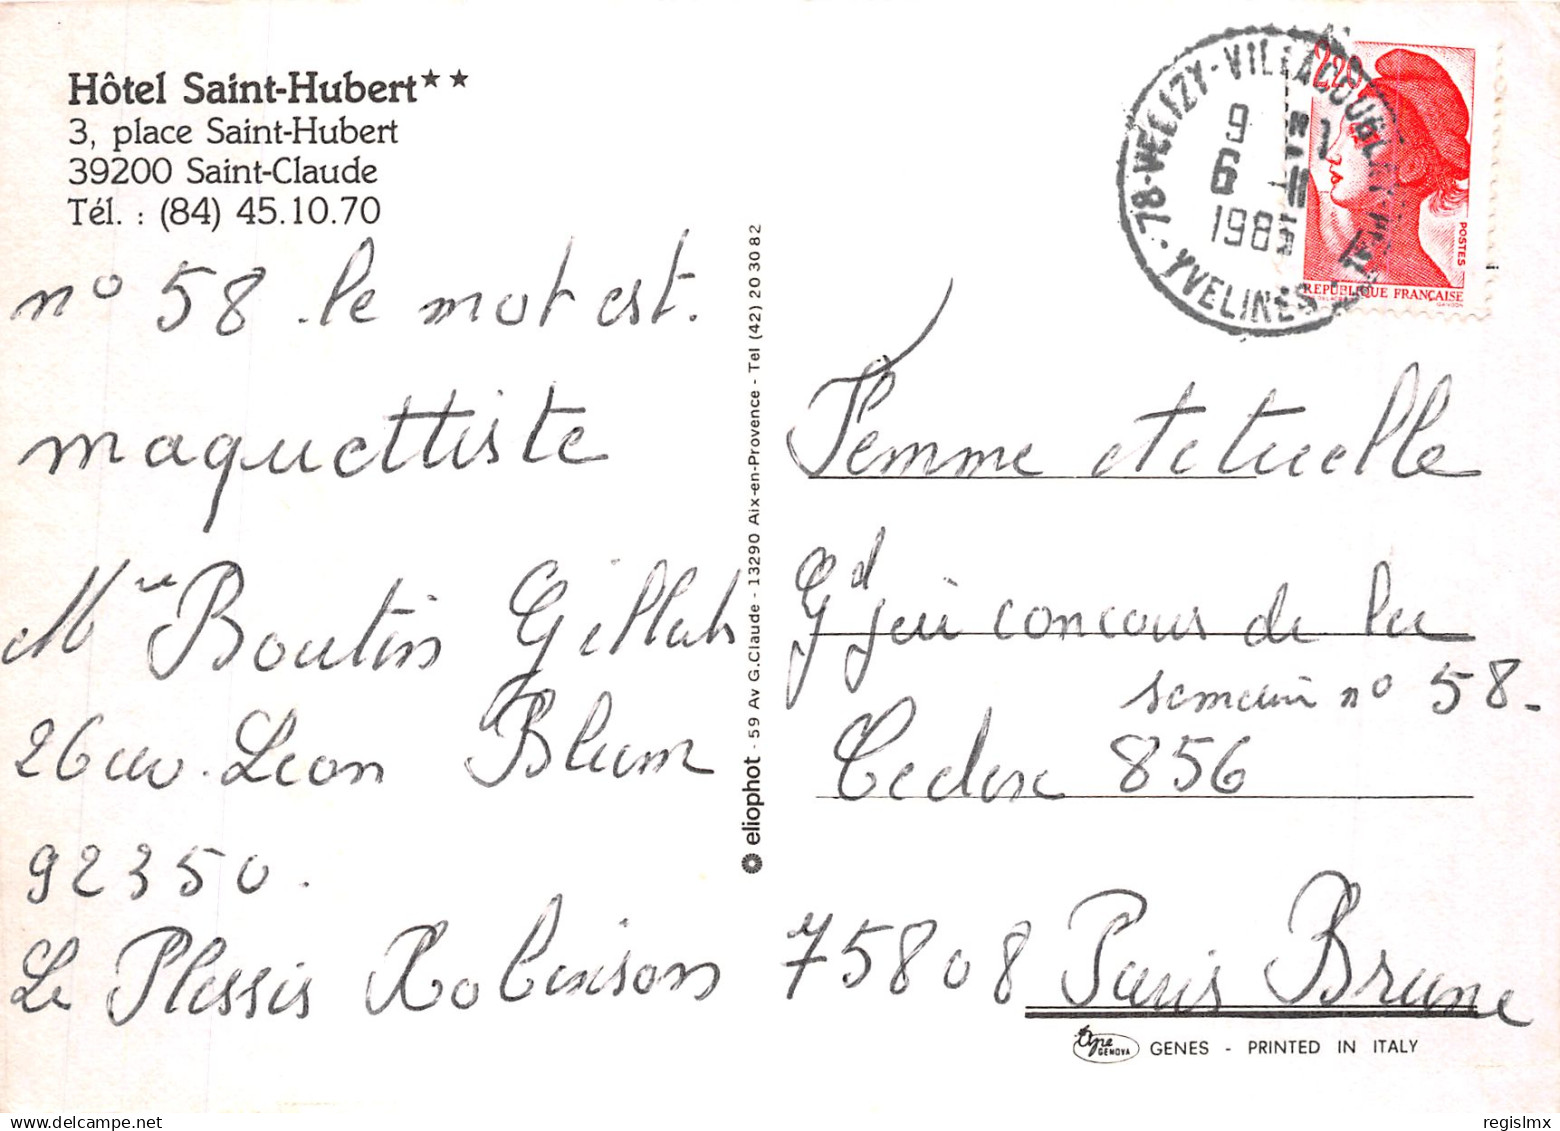 Hôtel Saint-Hubert★★
3, place Saint-Hubert
39200 Saint-Claude
Tél. : (84) 45.10.70
n° 58 le mot est.
maquettiste
Boutin
26 av. Leon Blum
92350.
Le Plessis Robinson
eliophot - 59 Av G.Claude - 13290 Aix-en-Provence - Tel (42) 20 30 82
78-VELIZY-VILLACOUBLAY
9
6
198
YVELINES
2,20
POSTES
REPUBLIQUE FRANÇAISE
Femme actuelle
Gd jeu concours de la
semain n° 58.
Cedex 856
75808 Paris Brune
GENOVA
GENES - PRINTED IN ITALY
regislmx